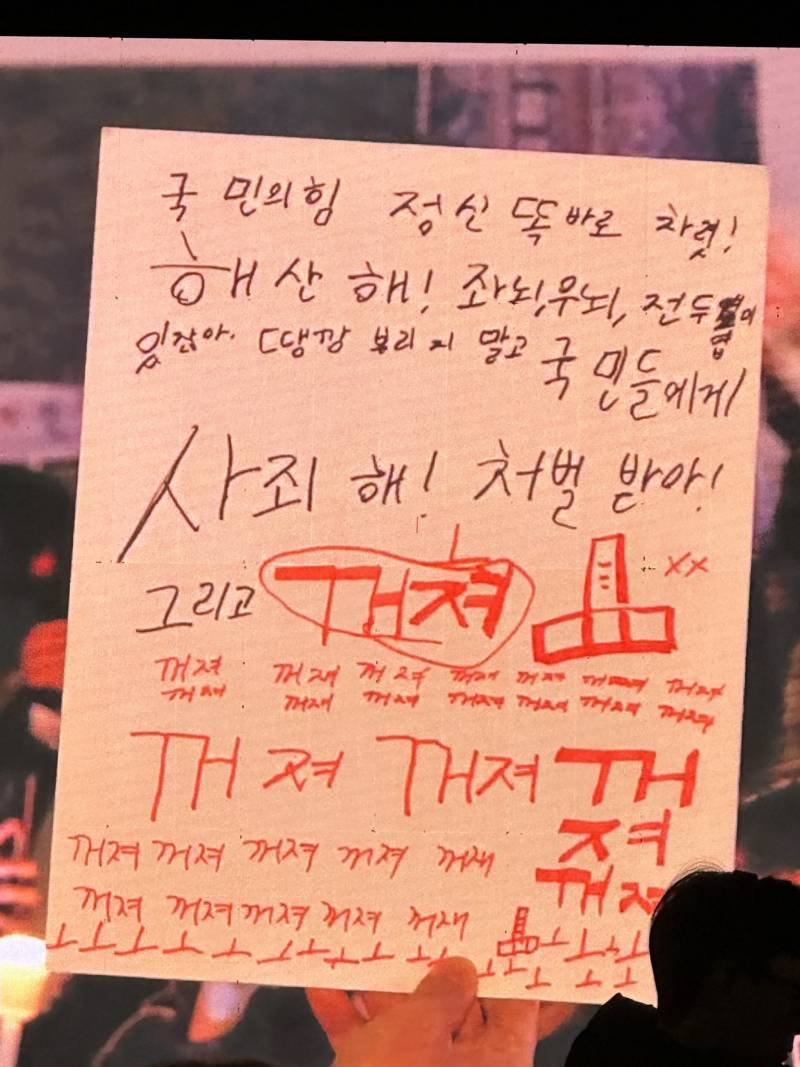 국민의힘 정신 똑바로 차렷!
해산해! 좌뇌, 우뇌, 전두엽이
있잖아. 땡깡 부리지 말고 국민들에게
사죄해! 처벌 받아!
그리고 꺼져 ㅗ xx
꺼져 꺼져 꺼져 꺼져 꺼져 꺼져 꺼져
꺼져 꺼져 꺼져 꺼져 꺼져 꺼져 꺼져
꺼져 꺼져 꺼
져
꺼져 꺼져 꺼져 꺼져 꺼져 꺼져
꺼져 꺼져 꺼져 꺼져 꺼져
ㅗㅗㅗㅗㅗㅗㅗㅗㅗㅗㅗㅗㅗㅗㅗ